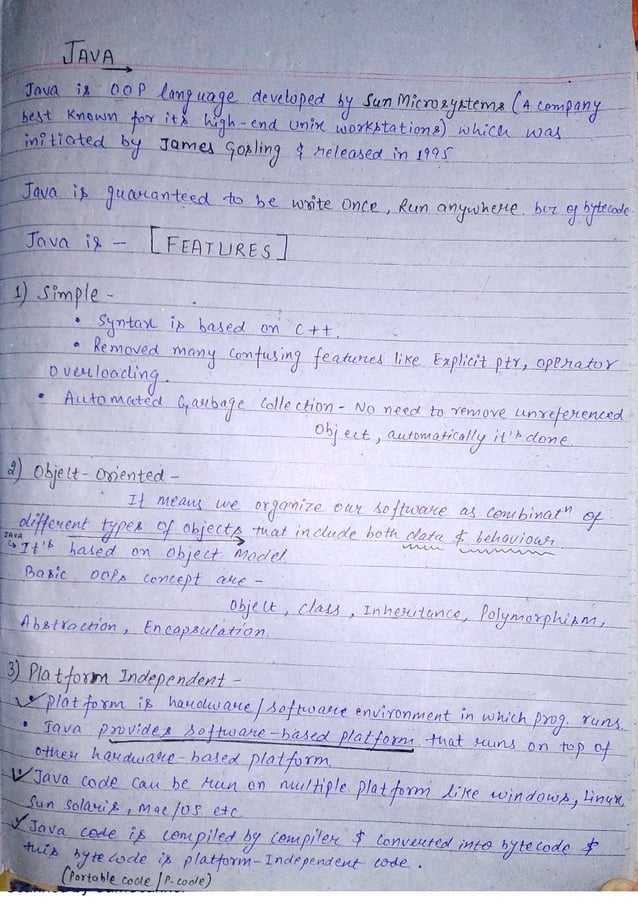 JAVA
Java is OOP language developed by Sun Microsystems (A company
best known for its high-end Unix workstations) which was
initiated by James Gosling & released in 1995
Java is guaranteed to be write Once, Run anywhere. bcz of bytecode
Java is - [FEATURES]
1) Simple -
• Syntax is based on C++.
• Removed many confusing features like Explicit ptr, operator
overloading.
• Automated Garbage Collection - No need to remove unreferenced
Object, automatically it's done
2) Object-Oriented -
It means we organize our software as combinatn of
different types of objects that include both data & behaviour
JAVA
It's based on object Model.
Basic OOPs concept are -
Object, class, Inheritance, Polymorphism,
Abstraction, Encapsulation.
3) Platform Independent -
• platform is hardware/software environment in which prog. runs.
• Java provides software-based platform that runs on top of
other hardware-based platform.
Java code can be run on multiple platform like windows, Linux,
Sun Solaris, Mac/OS etc.
Java code is compiled by compiler & converted into bytecode &
this bytecode is platform-Independent code.
(Portable code / P-code)